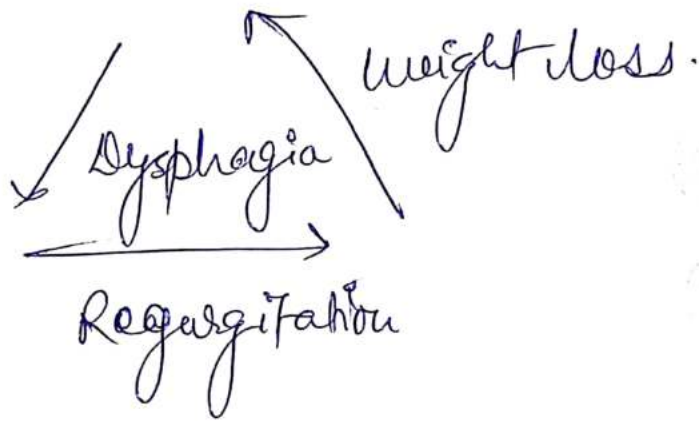 Weight loss.
Dysphagia
Regurgitation